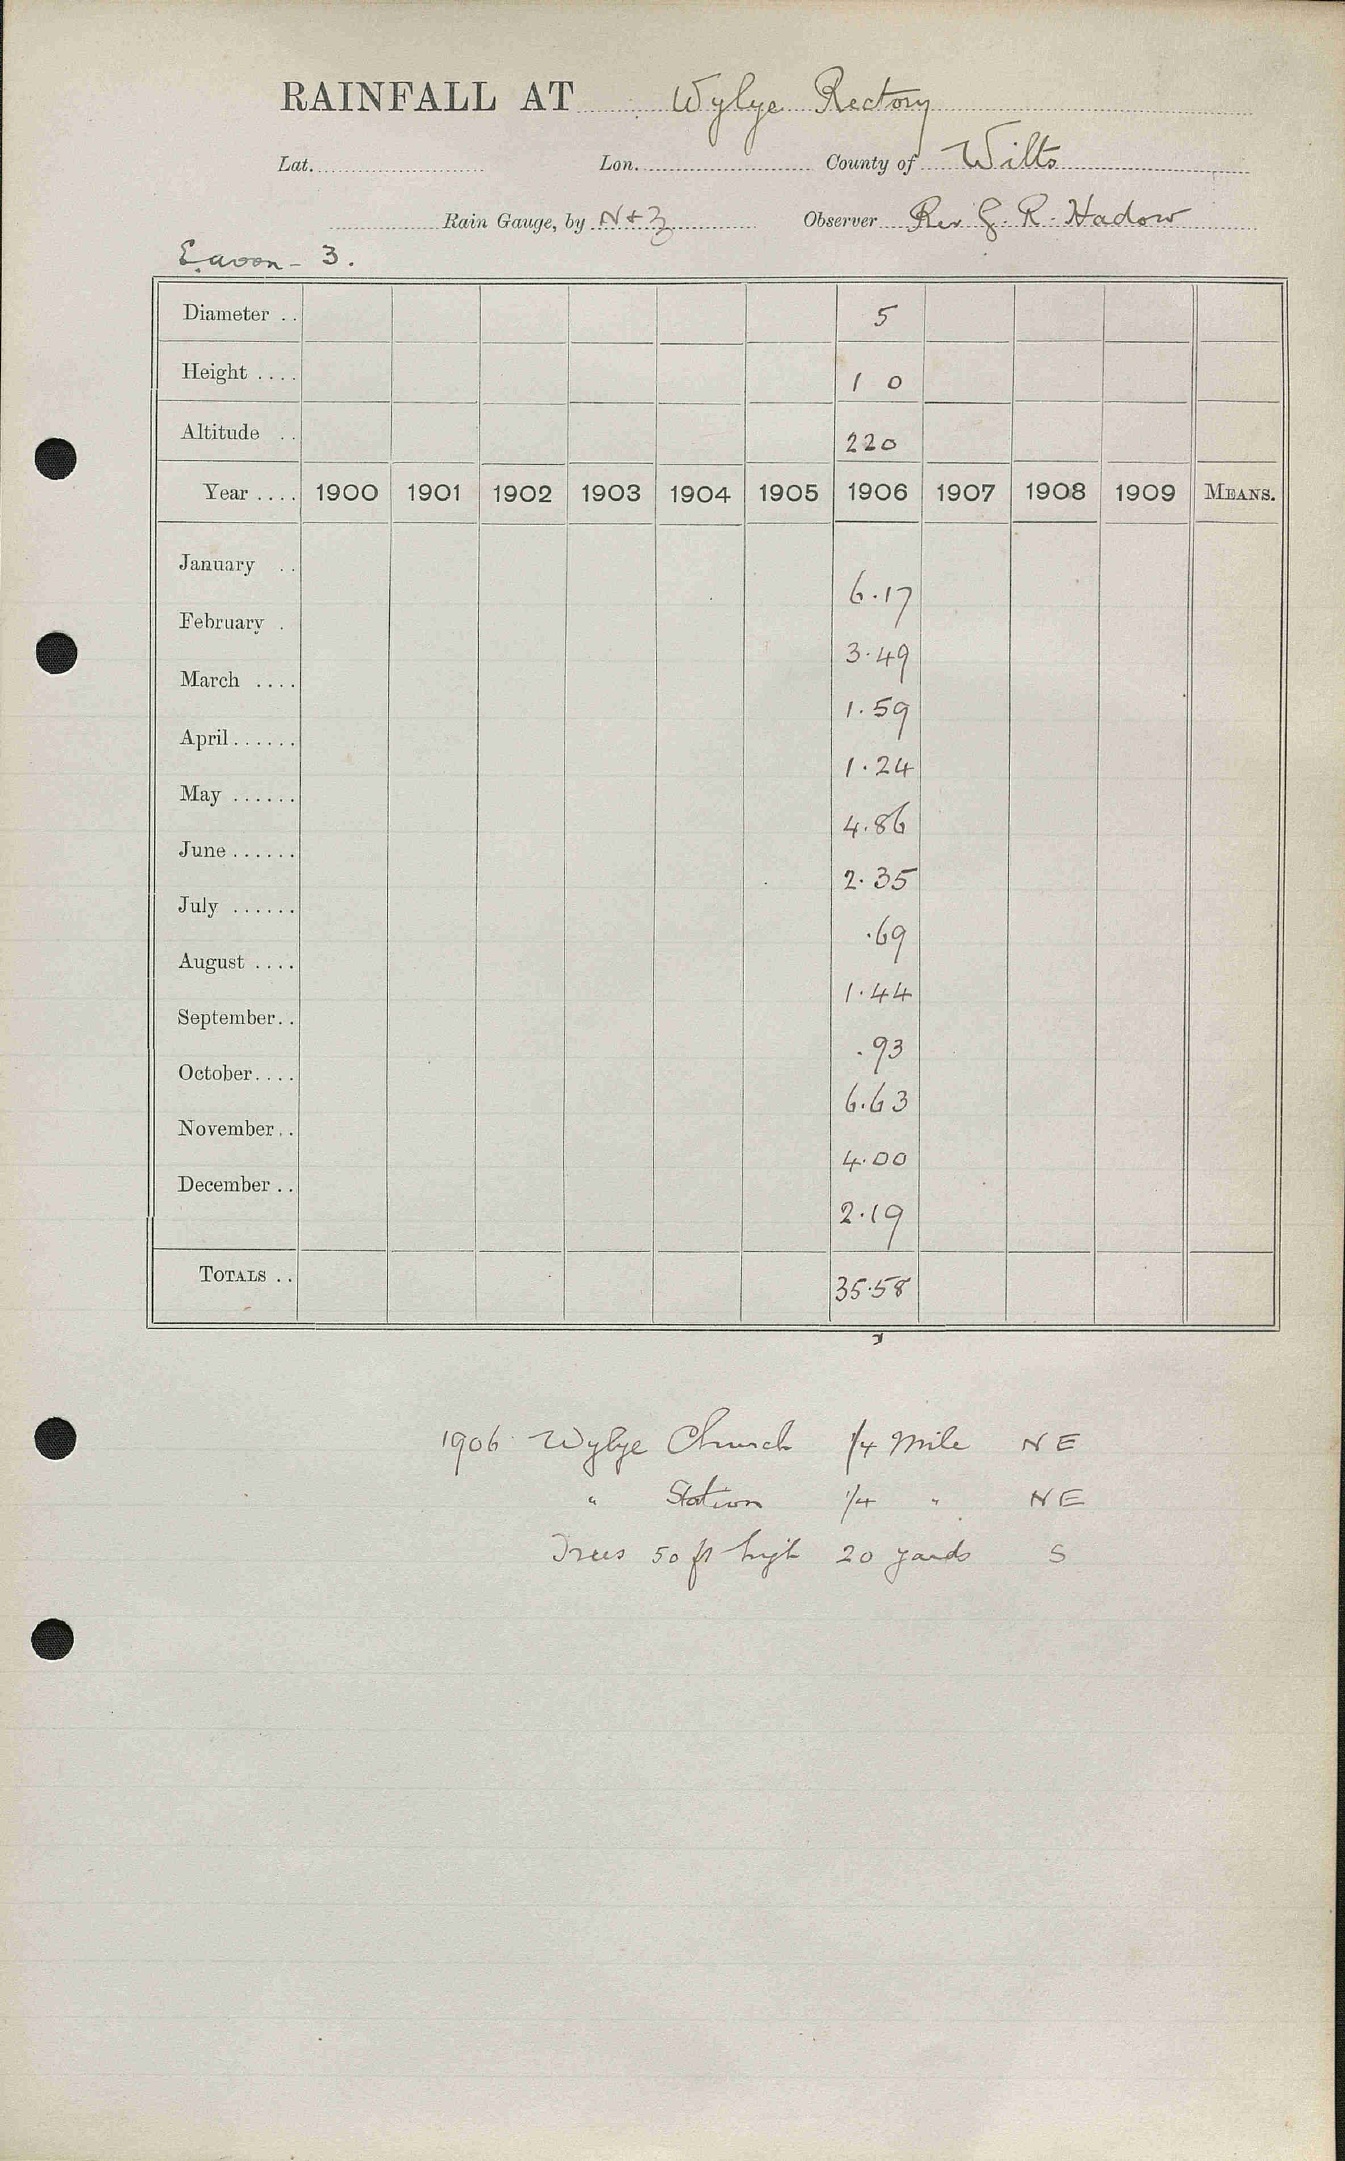 RAINFALL AT Wylye Rectory
Lat. Lon. County of Wilts
Rain Gauge, by N & Z Observer Rev G. R. Hadow
E. avon - 3.
Diameter .. 5
Height .... 1 0
Altitude .. 220
Year .... 1900 1901 1902 1903 1904 1905 1906 1907 1908 1909 MEANS.
January .. 6.17
February . 3.49
March .... 1.59
April ...... 1.24
May ...... 4.86
June ...... 2.35
July ...... .69
August .... 1.44
September .. .93
October .... 6.63
November .. 4.00
December .. 2.19
TOTALS .. 35.58
1906 Wylye Church 1/4 Mile NE
" Station 1/4 " NE
Trees 50 ft high 20 yards S